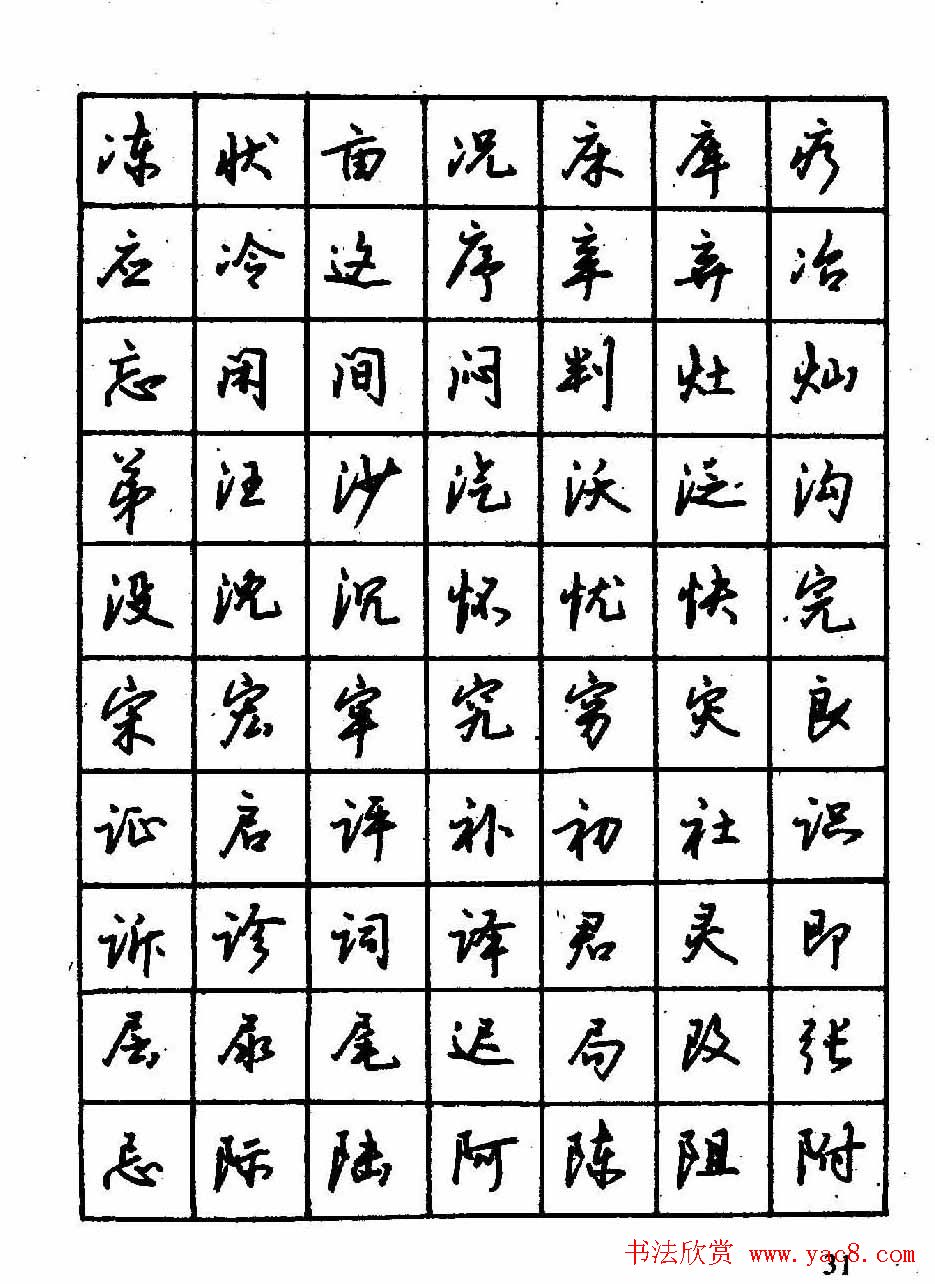 冻状亩况床库疗
应冷这序辛弃冶
忘闲间闷判灶灿
弟汪沙汽沃泛沟
没沈沉怀忧快完
宋宏牢究穷灾良
证启评补初社识
诉诊词译君灵即
层尿尾迟局改张
忌际陆阿陈阻附
书法欣赏 www.yac8.com
31